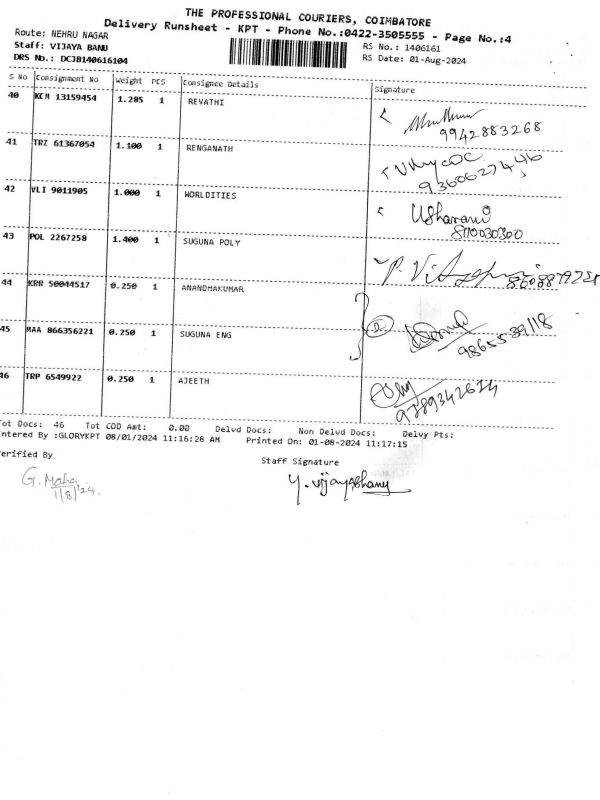 THE PROFESSIONAL COURIERS, COIMBATORE
Delivery Runsheet - KPT - Phone No.:0422-3505555 - Page No.:4
Route: NEHRU NAGAR
RS No.: 1406161
Staff: VIJAYA BANU
RS Date: 01-Aug-2024
DRS No.: DCJB140616104
S No Consignment No Weight PCS Consignee Details Signature
40 KCM 13159454 1.285 1 REVATHI
9942883268
41 TRZ 61367054 1.100 1 RENGANATH
9360627446
42 VLI 9011905 1.000 1 WORLDITIES
Usharani
8110030300
43 POL 2267258 1.400 1 SUGUNA POLY
44 KRR 50044517 0.250 1 ANANDHAKUMAR
45 MAA 866356221 0.250 1 SUGUNA ENG
9865539118
46 TRP 6549922 0.250 1 AJEETH
9789342614
Tot Docs: 46 Tot COD Amt: 0.00 Delvd Docs: Non Delvd Docs: Delvy Pts:
Entered By :GLORYKPT 08/01/2024 11:16:28 AM Printed On: 01-08-2024 11:17:15
Verified By
Staff Signature
G. Maha
1/8/'24.
Y. vijayabhanu